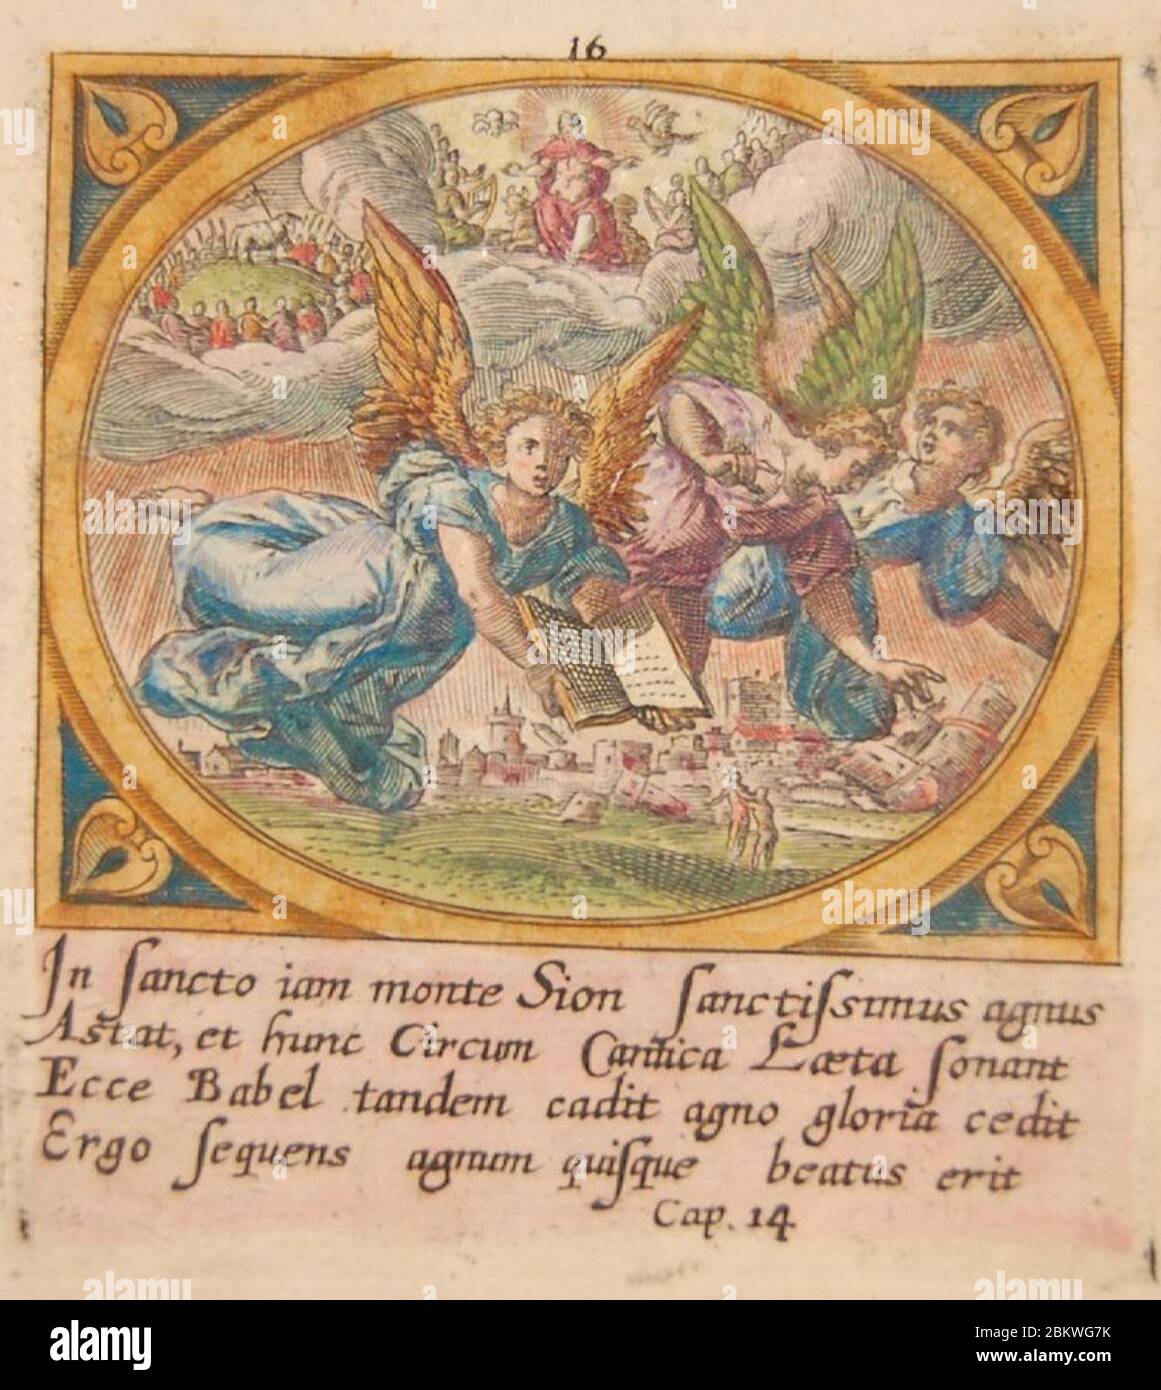 16
In sancto iam monte Sion sanctissimus agnus
Astat, et hunc Circum Cantica Læta sonant
Ecce Babel tandem cadit agno gloria cedit
Ergo sequens agnum quisque beatus erit
Cap. 14
alamy
Image ID: 2BKWG7K
www.alamy.com